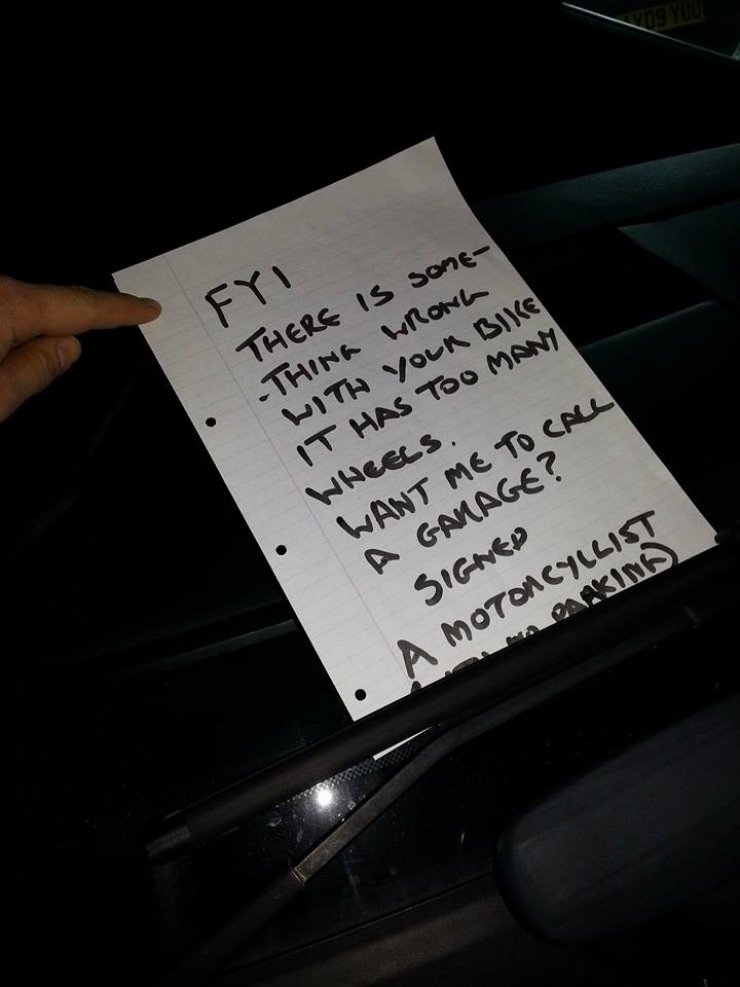 FYI
THERE IS SOME-
-THING WRONG
WITH YOUR BIKE
IT HAS TOO MANY
WHEELS.
WANT ME TO CALL
A GARAGE?
SIGNED
A MOTORCYCLLIST
NO PARKING)
Y09 YUU